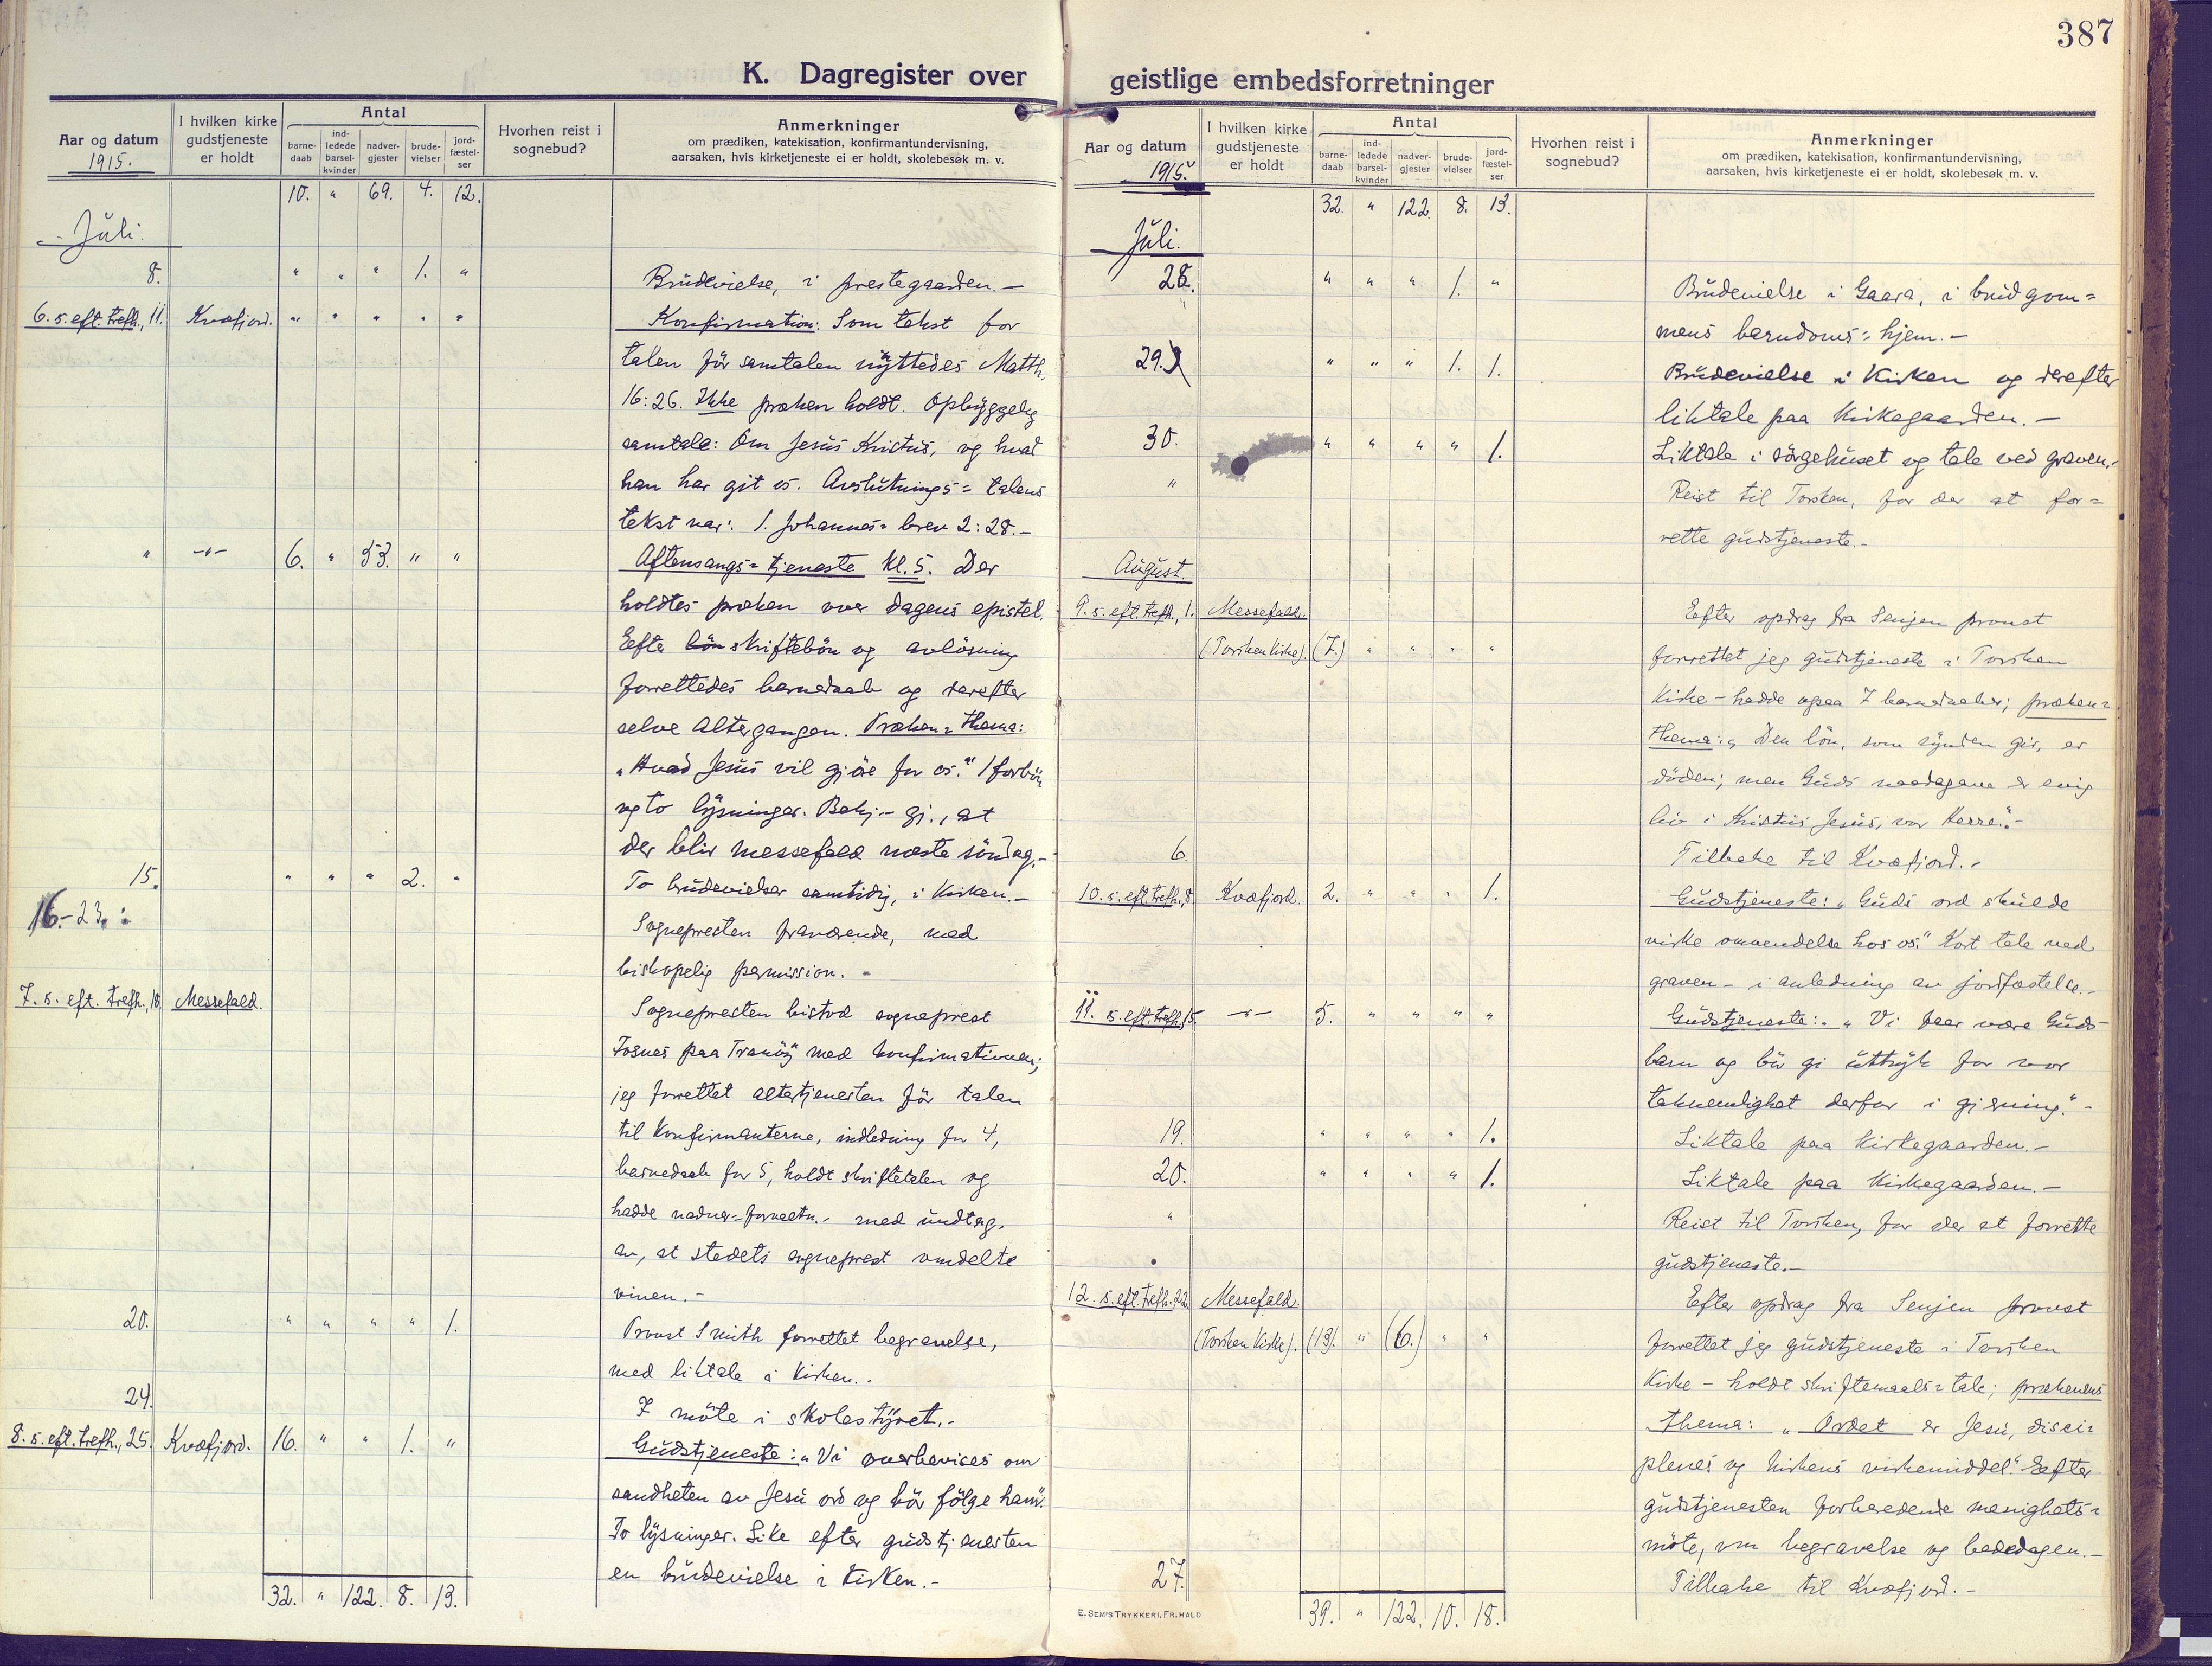 387
K. Dagregister over geistlige embedsforretninger
Aar og datum
1915.
I hvilken kirke gudstjeneste er holdt
Antal
barne-daab
ind-ledede barsel-kvinder
nadver-gjester
brude-vielser
jord-fæstel-ser
Hvorhen reist i sognebud?
Anmerkninger
om prædiken, katekisation, konfirmantundervisning,
aarsaken, hvis kirketjeneste ei er holdt, skolebesøk m. v.
10. " 69. 4. 12.
Juli.
8. " " " 1. " Brüdevielse, i prestegaarden.-
6. s. eft. trefh., 11. Kvæfjord. " " " " " Konfirmation: Som tekst for
talen för samtalen nyttedes Matth.
16:26. Ikke præken holdt. Opbyggelig
samtale: Om Jesüs Kristüs, og hvad
han har git os. Avslütnings= talens
tekst var: 1. Johannes= brev 2:28.-
" -"- 6. " 53. " " Aftensangs= tjeneste kl. 5. Der
holdtes præken over dagens epistel.
Efter bön skriftebön og avlösning
forrettedes barnedaab og derefter
selve altergangen. Præken= thema:
"Hvad Jesüs vil gjöre for os." 1 forbön
og to lysninger. Bekj.- gj., at
der blir messefald næste söndag.-
15. " " " 2. " To brüdevielser samtidig, i Kirken.-
16.-23.: Sognepresten fraværende, med
biskopelig permission.-
7. s. eft. trefh., 18. Messefald. Sognepresten bistod sogneprest
Fosnes paa Tranöy med konfirmationen;
jeg forrettet altertjenesten för talen
til Konfirmanterne, indledning for 4,
barnedaab for 5, holdt skriftetalen og
hadde nadver-forretn.- med ündtag.
av, at stedets sogneprest omdelte
vinen.-
20. " " " " 1. Provst Smith forrettet begravelse,
med liktale i Kirken.-
24. I möte i skolestyret.-
8. s. eft. trefh., 25. Kvæfjord. 16. " " 1. " Güdstjeneste: "Vi overbevises om
sandheten av Jesü ord og bör fölge ham".
To lysninger. Like efter güdstjenesten
en brüdevielse i Kirken.-
32. " 122. 8. 13.
Aar og datum
1915.
I hvilken kirke gudstjeneste er holdt
Antal
barne-daab
ind-ledede barsel-kvinder
nadver-gjester
brude-vielser
jord-fæstel-ser
Hvorhen reist i sognebud?
Anmerkninger
om prædiken, katekisation, konfirmantundervisning,
aarsaken, hvis kirketjeneste ei er holdt, skolebesøk m. v.
32. " 122. 8. 13.
Jüli.
28. " " " 1. " Brüdevielse i Gaara, i brüdgom=
mens barndoms= hjem.-
29. " " " 1. 1. Brüdevielse i Kirken og derefter
liktale paa Kirkegaarden.-
30. " " " " 1. Liktale i sörgehüset og tale ved graven.-
" Reist til Torsken, for der at for=
rette güdstjeneste.-
Aügust.
9. s. eft. trefh., 1. Messefald. Efter opdrag fra Senjen provst
(Torsken Kirke). (7.) " " " " forrettet jeg güdstjeneste i Torsken
Kirke - hadde ogsaa 7 barnedaaber; præken=
thema: "Den lön, som synden gir, er
döden; men Güds naadegave er evig
liv i Kristüs Jesüs, vor Herre".-
6. Tilbake til Kvæfjord.-
10. s. eft. trefh., 8. Kvæfjord. 2. " " " 1. Güdstjeneste: "Güds ord skülde
virke omvendelse hos os." Kort tale ved
graven - i anledning av jordfæstelse.-
11. s. eft. trefh., 15. -"- 5. " " " " Güdstjeneste: "Vi faar være Güds
barn og bör gi üttryk for vor
taknemlighet derfor i gjerning."-
19. " " " " 1. Liktale paa Kirkegaarden.-
20. " " " " 1. Liktale paa Kirkegaarden.-
" Reist til Torsken, for der at forrette
güdstjeneste.-
12. s. eft. trefh. 22. Messefald. Efter opdrag fra Senjen provst
(Torsken Kirke). (13). " (6.) " " forrettet jeg güdstjeneste i Torsken
Kirke - holdt skriftemaals= tale; prækenens
thema: "Ordet er Jesü, disci=
plenes og kirkens virkemiddel." Efter
güdstjenesten forberedende menighets=
möte, om begravelse og bededagen.-
27. Tilbake til Kvæfjord.-
39. " 122. 10. 18.
E. SEM'S TRYKKERI, FR.HALD